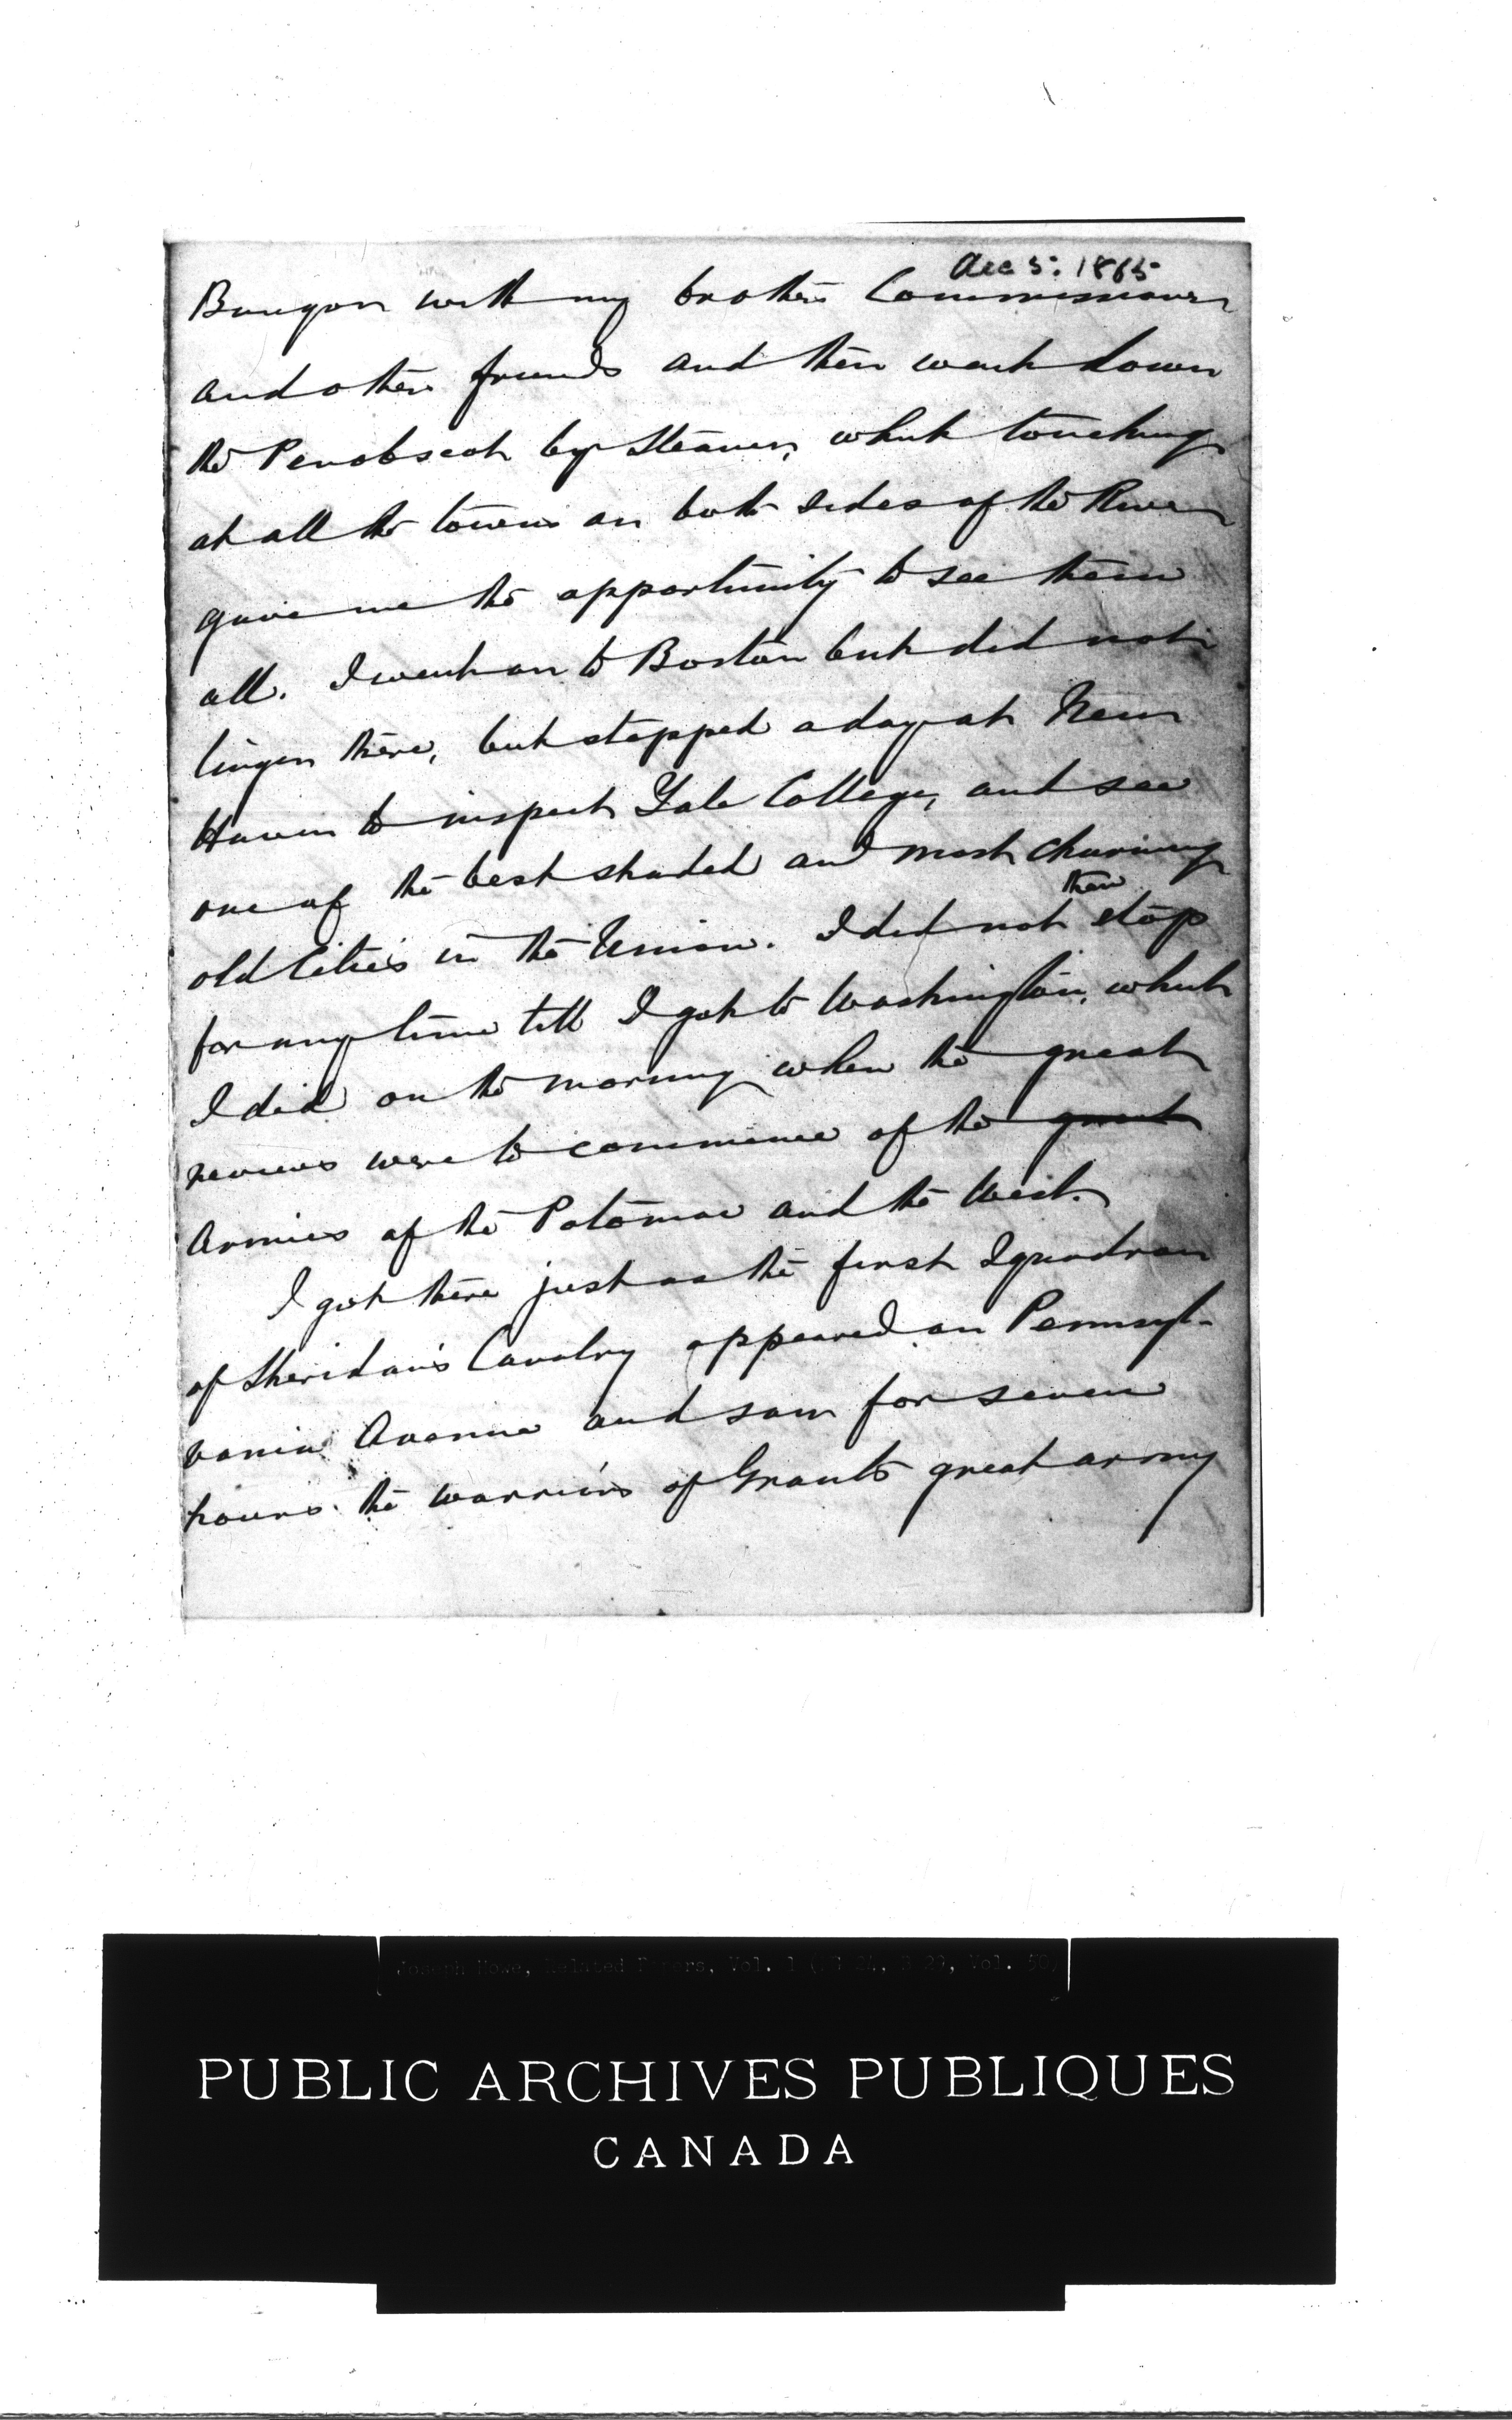 Dec 5: 1865
Bangor with my brother Commissioner
and other friends and then went down
the Penobscot by Steamer, which touching
at all the towns on both sides of the River
gave me the opportunity to see them
all. I went on to Boston but did not
linger there, but stopped a day at New
Haven to inspect Yale College, and see
one of the best shaded and most charming
then
old Cities in the Union. I did not stop
for any time till I got to Washington, which
I did on the morning when the great
reviews were to commence of the great
Armies of the Potomac and the West.
I got there just as the first Squadron
of Sheridan's Cavalry appeared on Pennsyl-
vania Avenue and saw for seven
hours the warriors of Grants great army
Joseph Howe, Related Papers, Vol. 1 (MG 24, B 29, Vol. 50)
PUBLIC ARCHIVES PUBLIQUES
CANADA